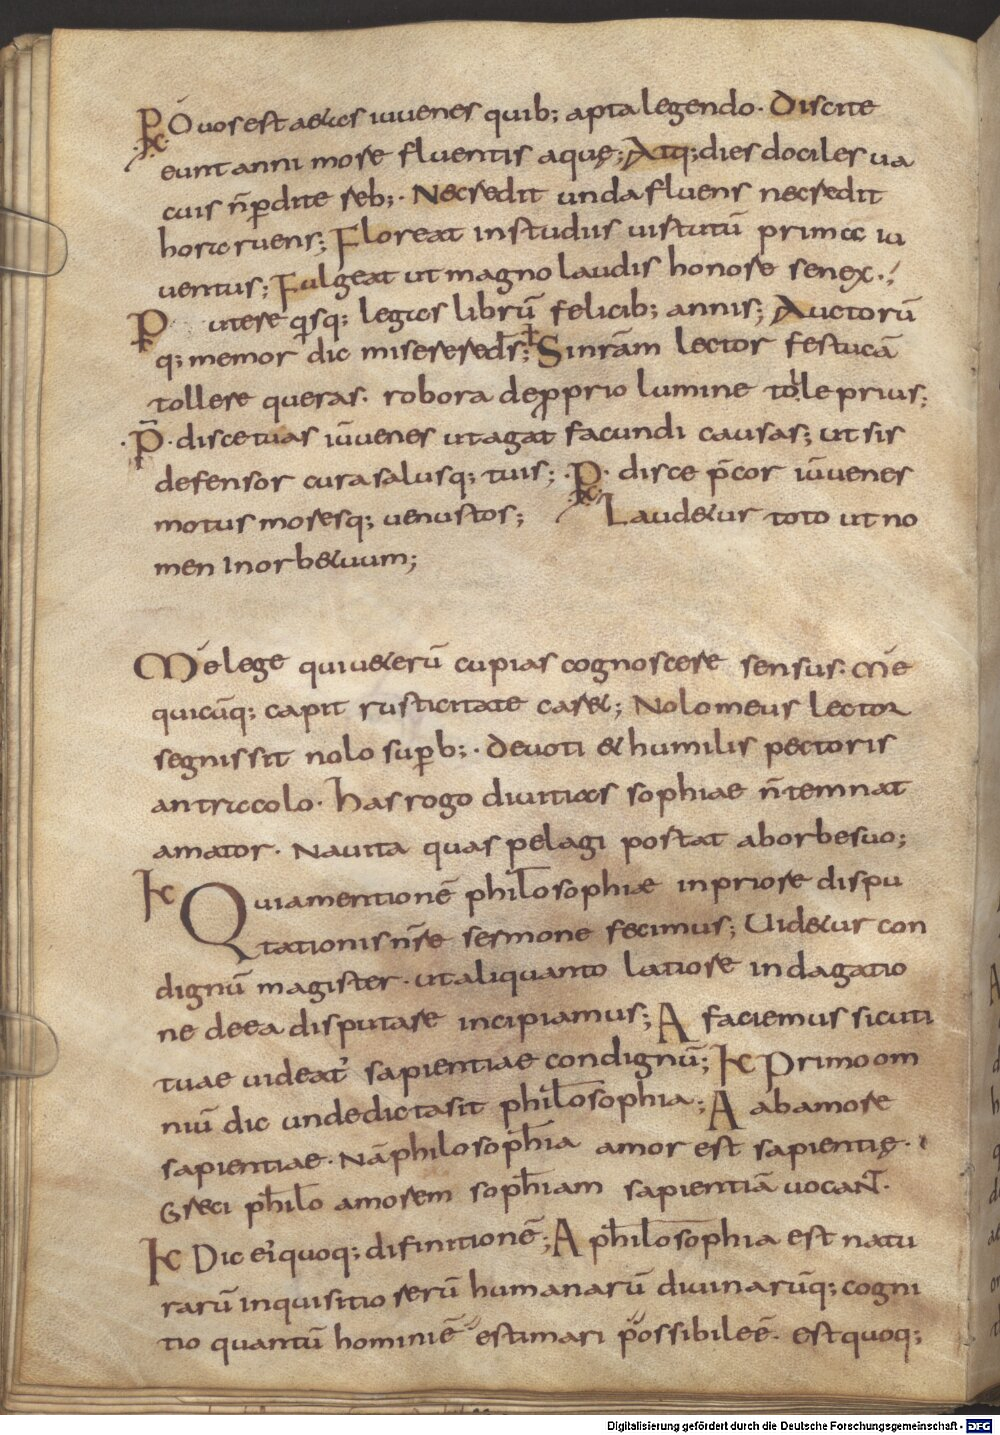 O uos est aetas iuuenes quib; apta legendo. Discite
eunt anni more fluentis aquę; Atq; dies dociles ua
cuis n̄ perdite reb;. Nec redit unda fluens nec redit
hora ruens; Floreat in studiis uirtutū prima iu
uentus; Fulgeat ut magno laudis honore senex.;
P utere qisq; legas librū felicib; annis; Auctorū
q; memor dic miserere ds̄; Sin rām lector festucā
tollere queras. robora de pprio lumine tolle prius;
P̄. disce tuas iūuenes ut agat facundi causas; ut sis
defensor cura salusq; tuis; .P. disce p̄cor iūuenes
motus moresq; uenustos; Laudetur toto ut no
men in orbe tuum;
Me lege qui ueterū cupias cognoscere sensus. Me
quicūq; capit rusticitate caret; Nolo meus lector
segnis sit nolo superb;. deuoti & humilis pectoris
antra colo. has rogo diuitias sophiae n̄ temnat
amator. Nauita quas pelagi portat ab orbe suo;
K Quia mentionē philosophiae in priore dispu
tationis nr̄e sermone fecimus; Uidetur con
dignū magister. ut aliquanto latiore indagatio
ne de ea disputare incipiamus; A faciemus sicuti
tuae uideat' sapientiae condignū; K Primo om
niū dic unde dicta sit philosophia; A ab amore
sapientiae. Nā philosophia amor est sapientię.
Greci philo amorem sophiam sapientiā uocant.
K Dic ei' quoq; difinitionē; A philosophia est natu
rarū inquisitio rerū humanarū diuinarūq; cogni
tio quantū homini ē estimari possibile ē. est quoq;
Digitalisierung gefördert durch die Deutsche Forschungsgemeinschaft - DFG